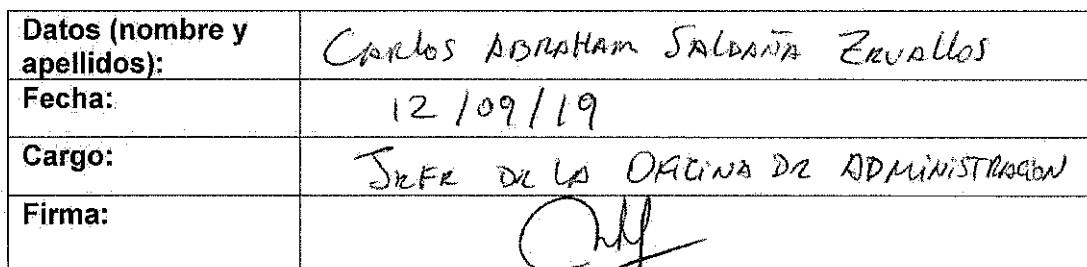 Datos (nombre y
apellidos):
CARLOS ABRAHAM SALDAÑA ZEVALLOS
Fecha:
12/09/19
Cargo:
JEFE DE LA OFICINA DE ADMINISTRACION
Firma: